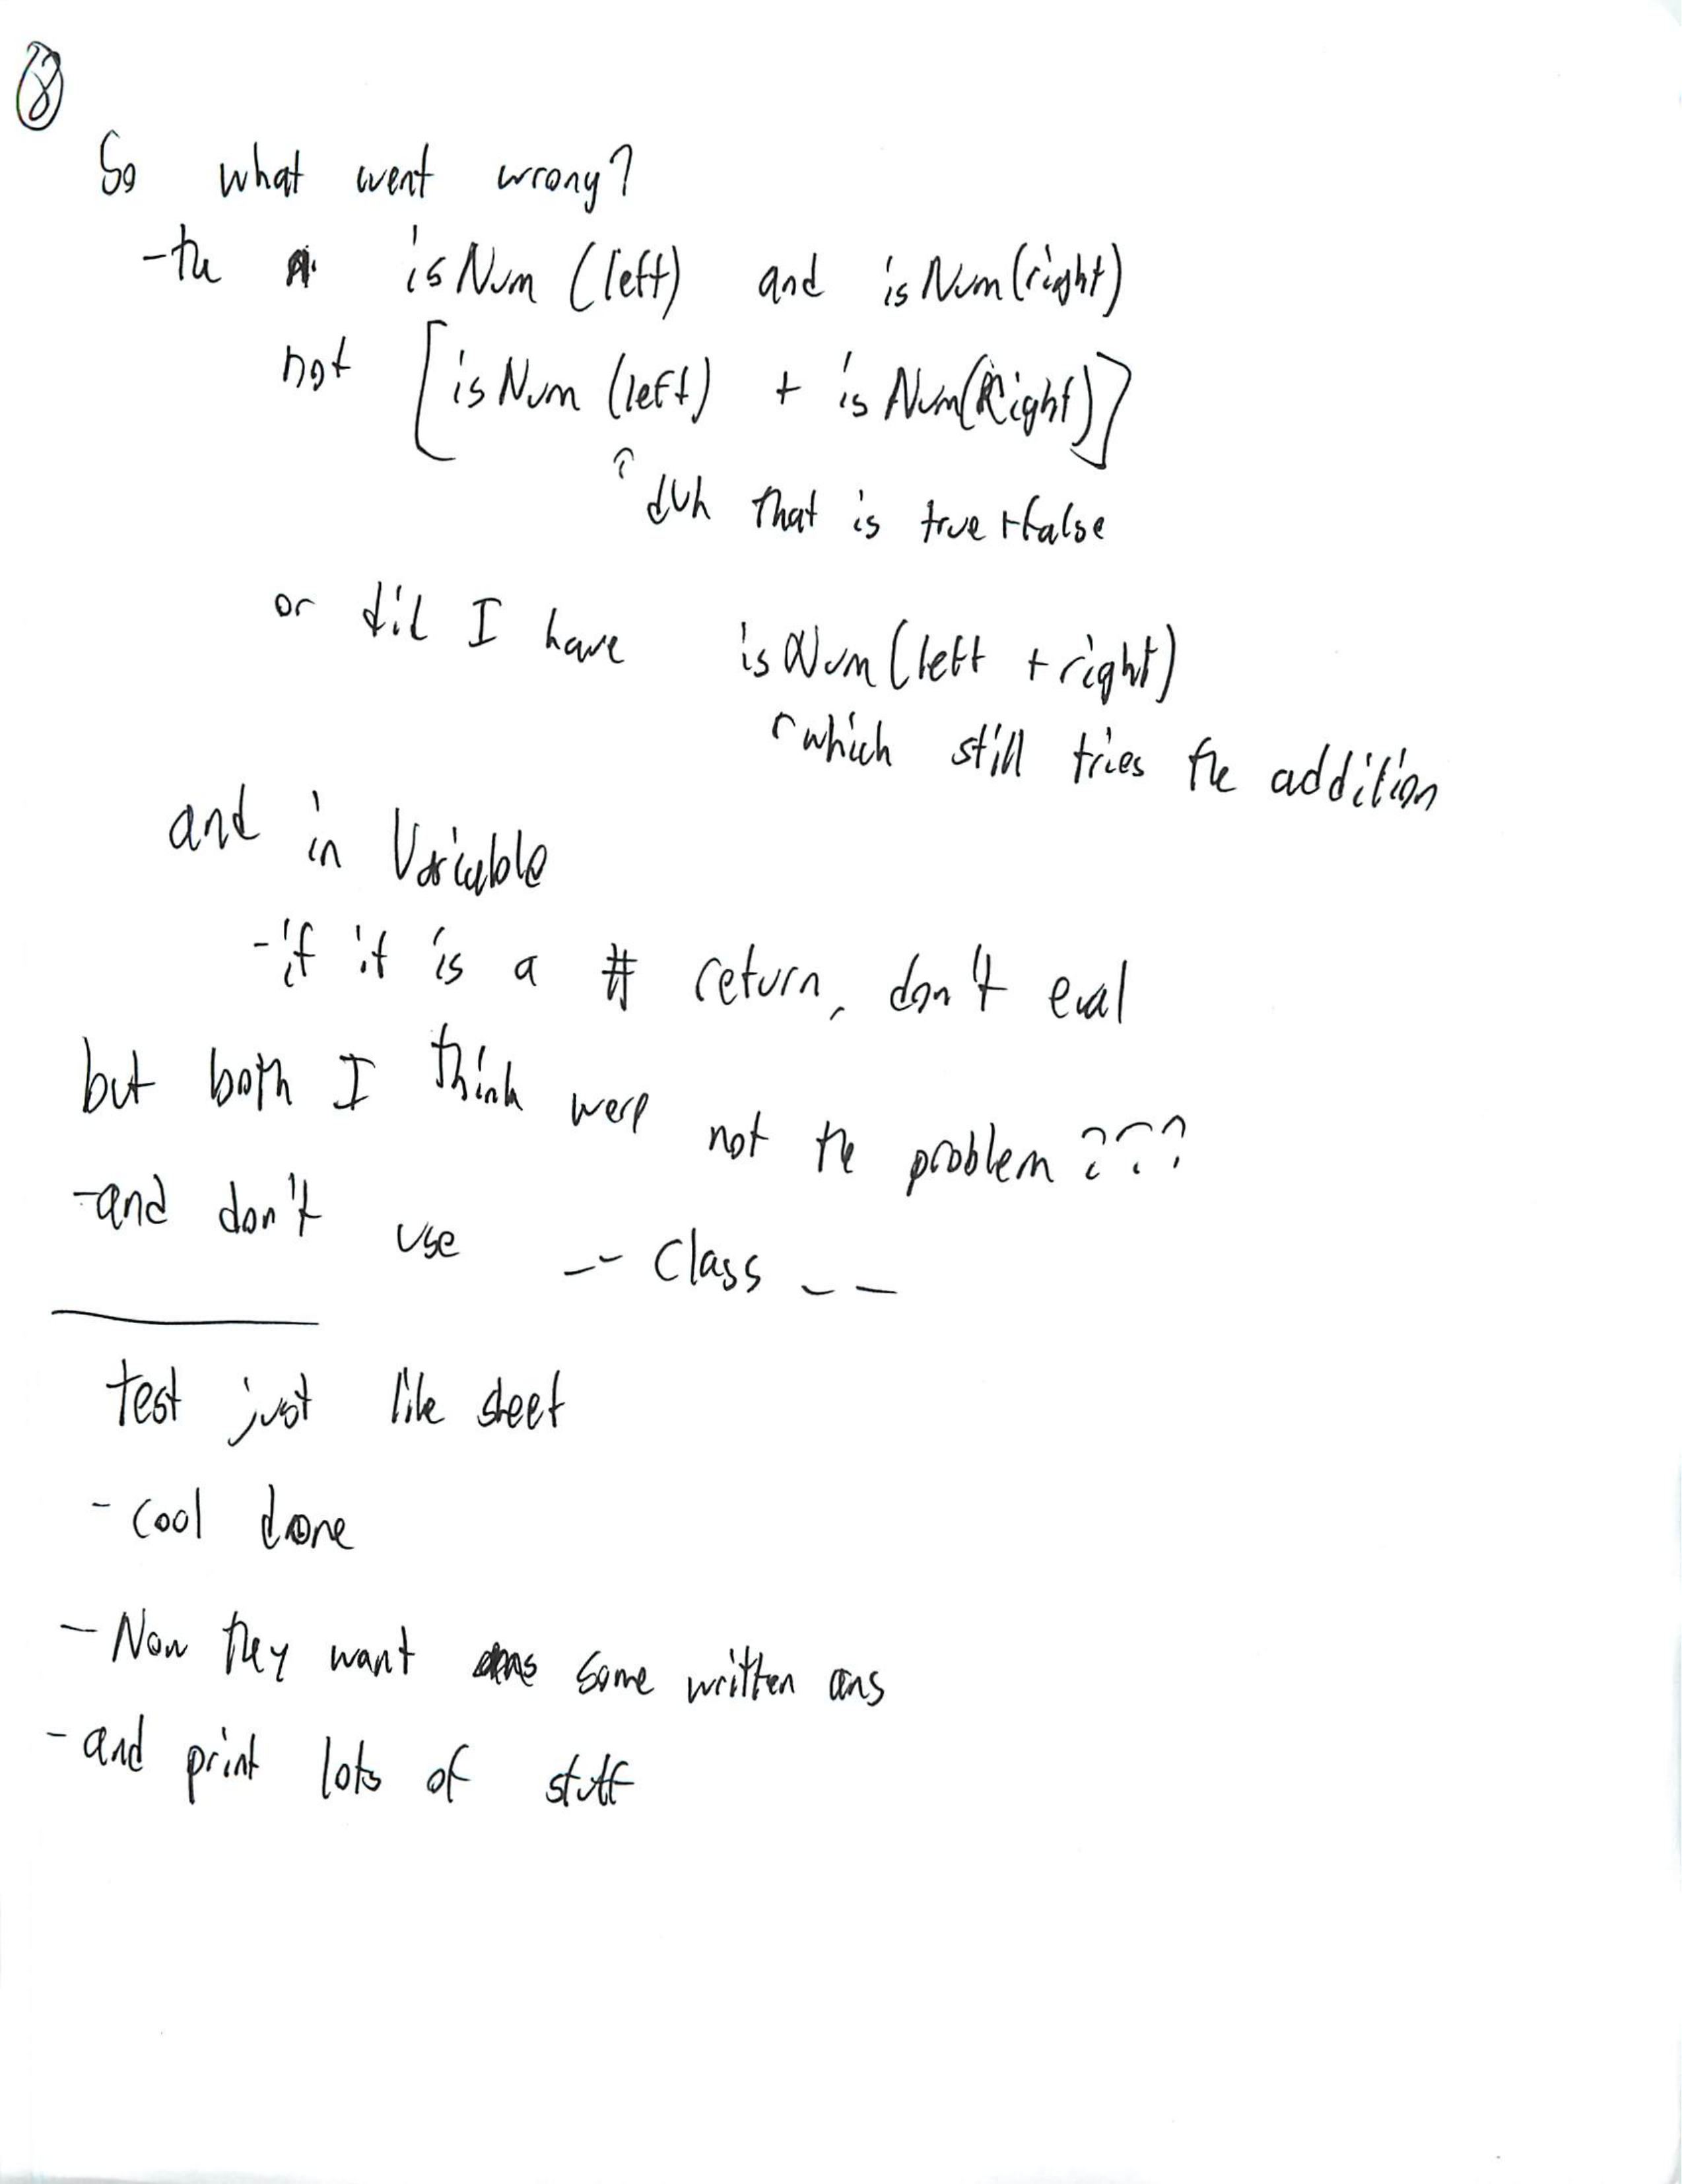 8
So what went wrong?
- the isNum (left) and isNum(right)
not [isNum (left) + isNum(Right)]
↑ duh that is true+false
or did I have isNum(left + right)
↑ which still tries the addition
and in Variable
- if it is a # return, don't eval
but both I think were not the problem ???
- and don't use __ class __
test just like sheet
- cool done
- Now they want some written ans
- and print lots of stuff